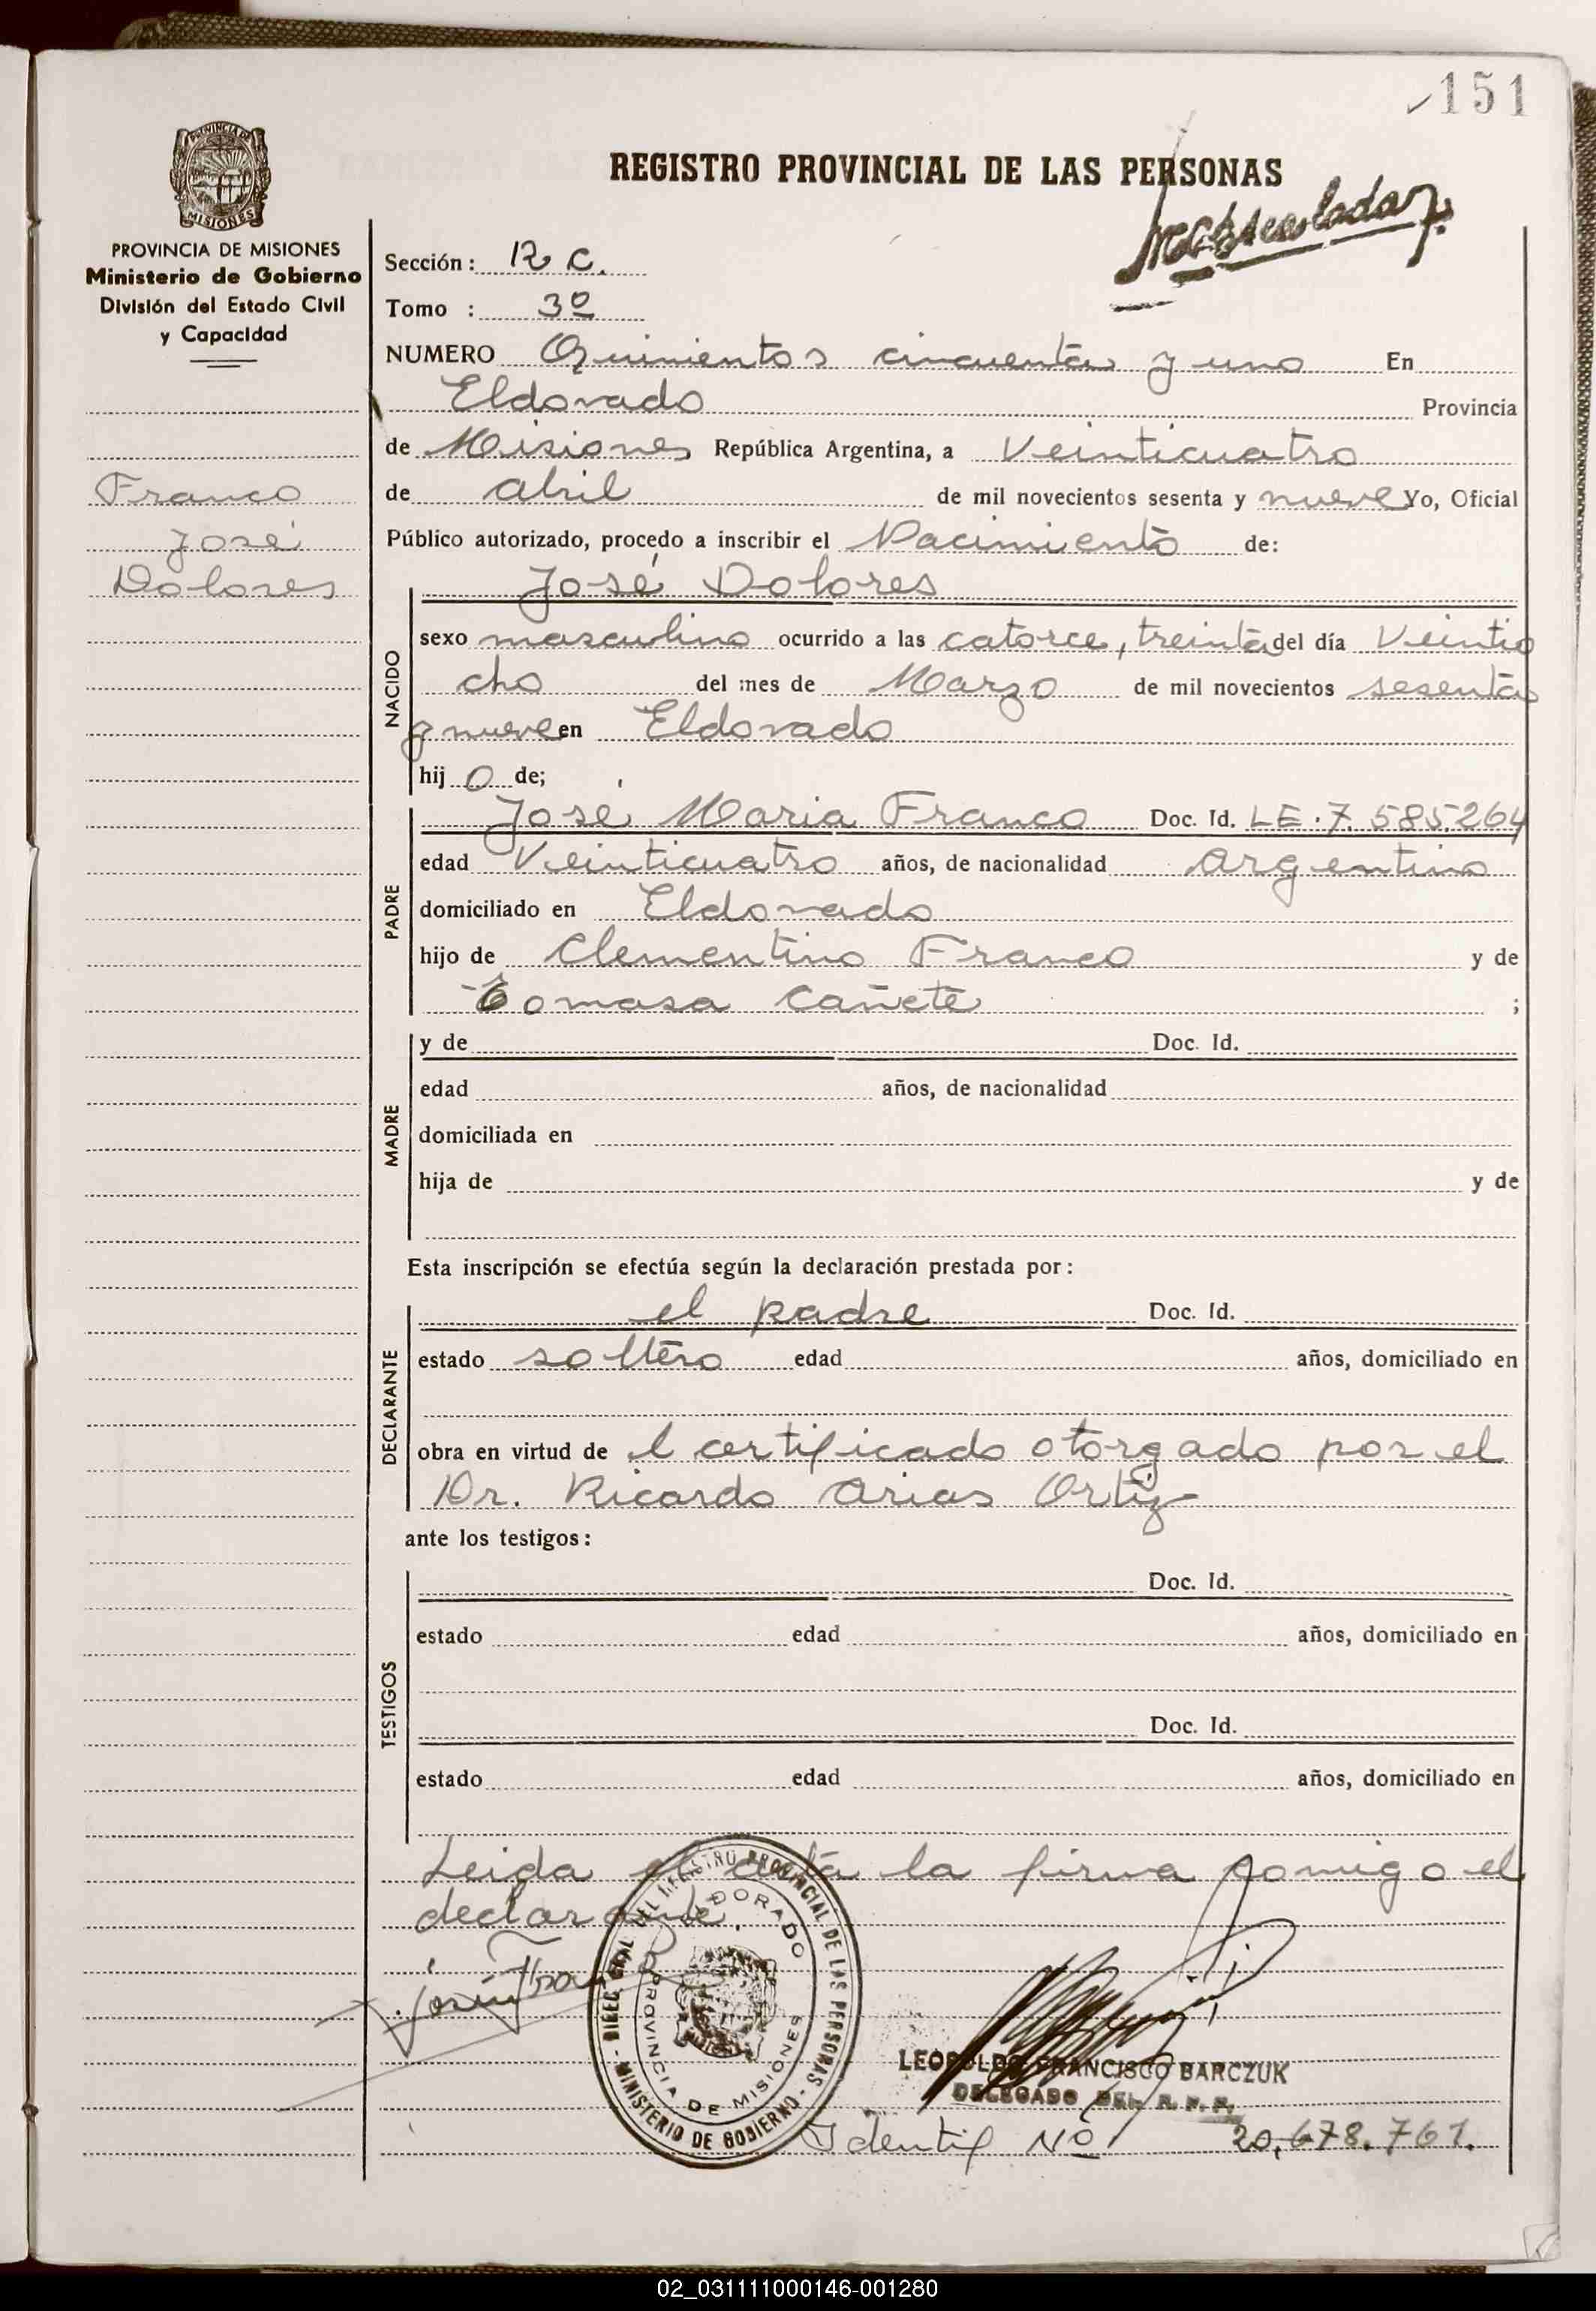 151
REGISTRO PROVINCIAL DE LAS PERSONAS
PROVINCIA DE MISIONES
MISIONES
PROVINCIA DE MISIONES
Ministerio de Gobierno
División del Estado Civil
y Capacidad
Franco
José
Dolores
Sección: R C.
Tomo : 3º
NUMERO Quinientos cincuenta y uno En
Eldorado Provincia
de Misiones República Argentina, a Veinticuatro
de abril de mil novecientos sesenta y nueve Yo, Oficial
Público autorizado, procedo a inscribir el Nacimiento de:
NACIDO
José Dolores
sexo masculino ocurrido a las catorce, treinta del día Veintio
cho del mes de Marzo de mil novecientos sesenta
y nueve en Eldorado
hij o de;
PADRE
José Maria Franco Doc. Id. LE. 7.585.264
edad Veinticuatro años, de nacionalidad argentino
domiciliado en Eldorado
hijo de Clementino Franco y de
Tomasa Cañete ;
MADRE
y de Doc. Id.
edad años, de nacionalidad
domiciliada en
hija de y de
Esta inscripción se efectúa según la declaración prestada por:
DECLARANTE
el padre Doc. Id.
estado soltero edad años, domiciliado en
obra en virtud de l certificado otorgado por el
Dr. Ricardo Arias Ortiz
ante los testigos:
TESTIGOS
Doc. Id.
estado edad años, domiciliado en
Doc. Id.
estado edad años, domiciliado en
Leida el acta la firma comigo el
declarante.
DIREC. GRAL. DEL REGISTRO PROVINCIAL DE LAS PERSONAS - MINISTERIO DE GOBIERNO -
ELDORADO
PROVINCIA DE MISIONES
LEOPOLDO FRANCISCO BARCZUK
DELEGADO DEL R. P. P.
Identif Nº 20.678.761.
02_031111000146-001280